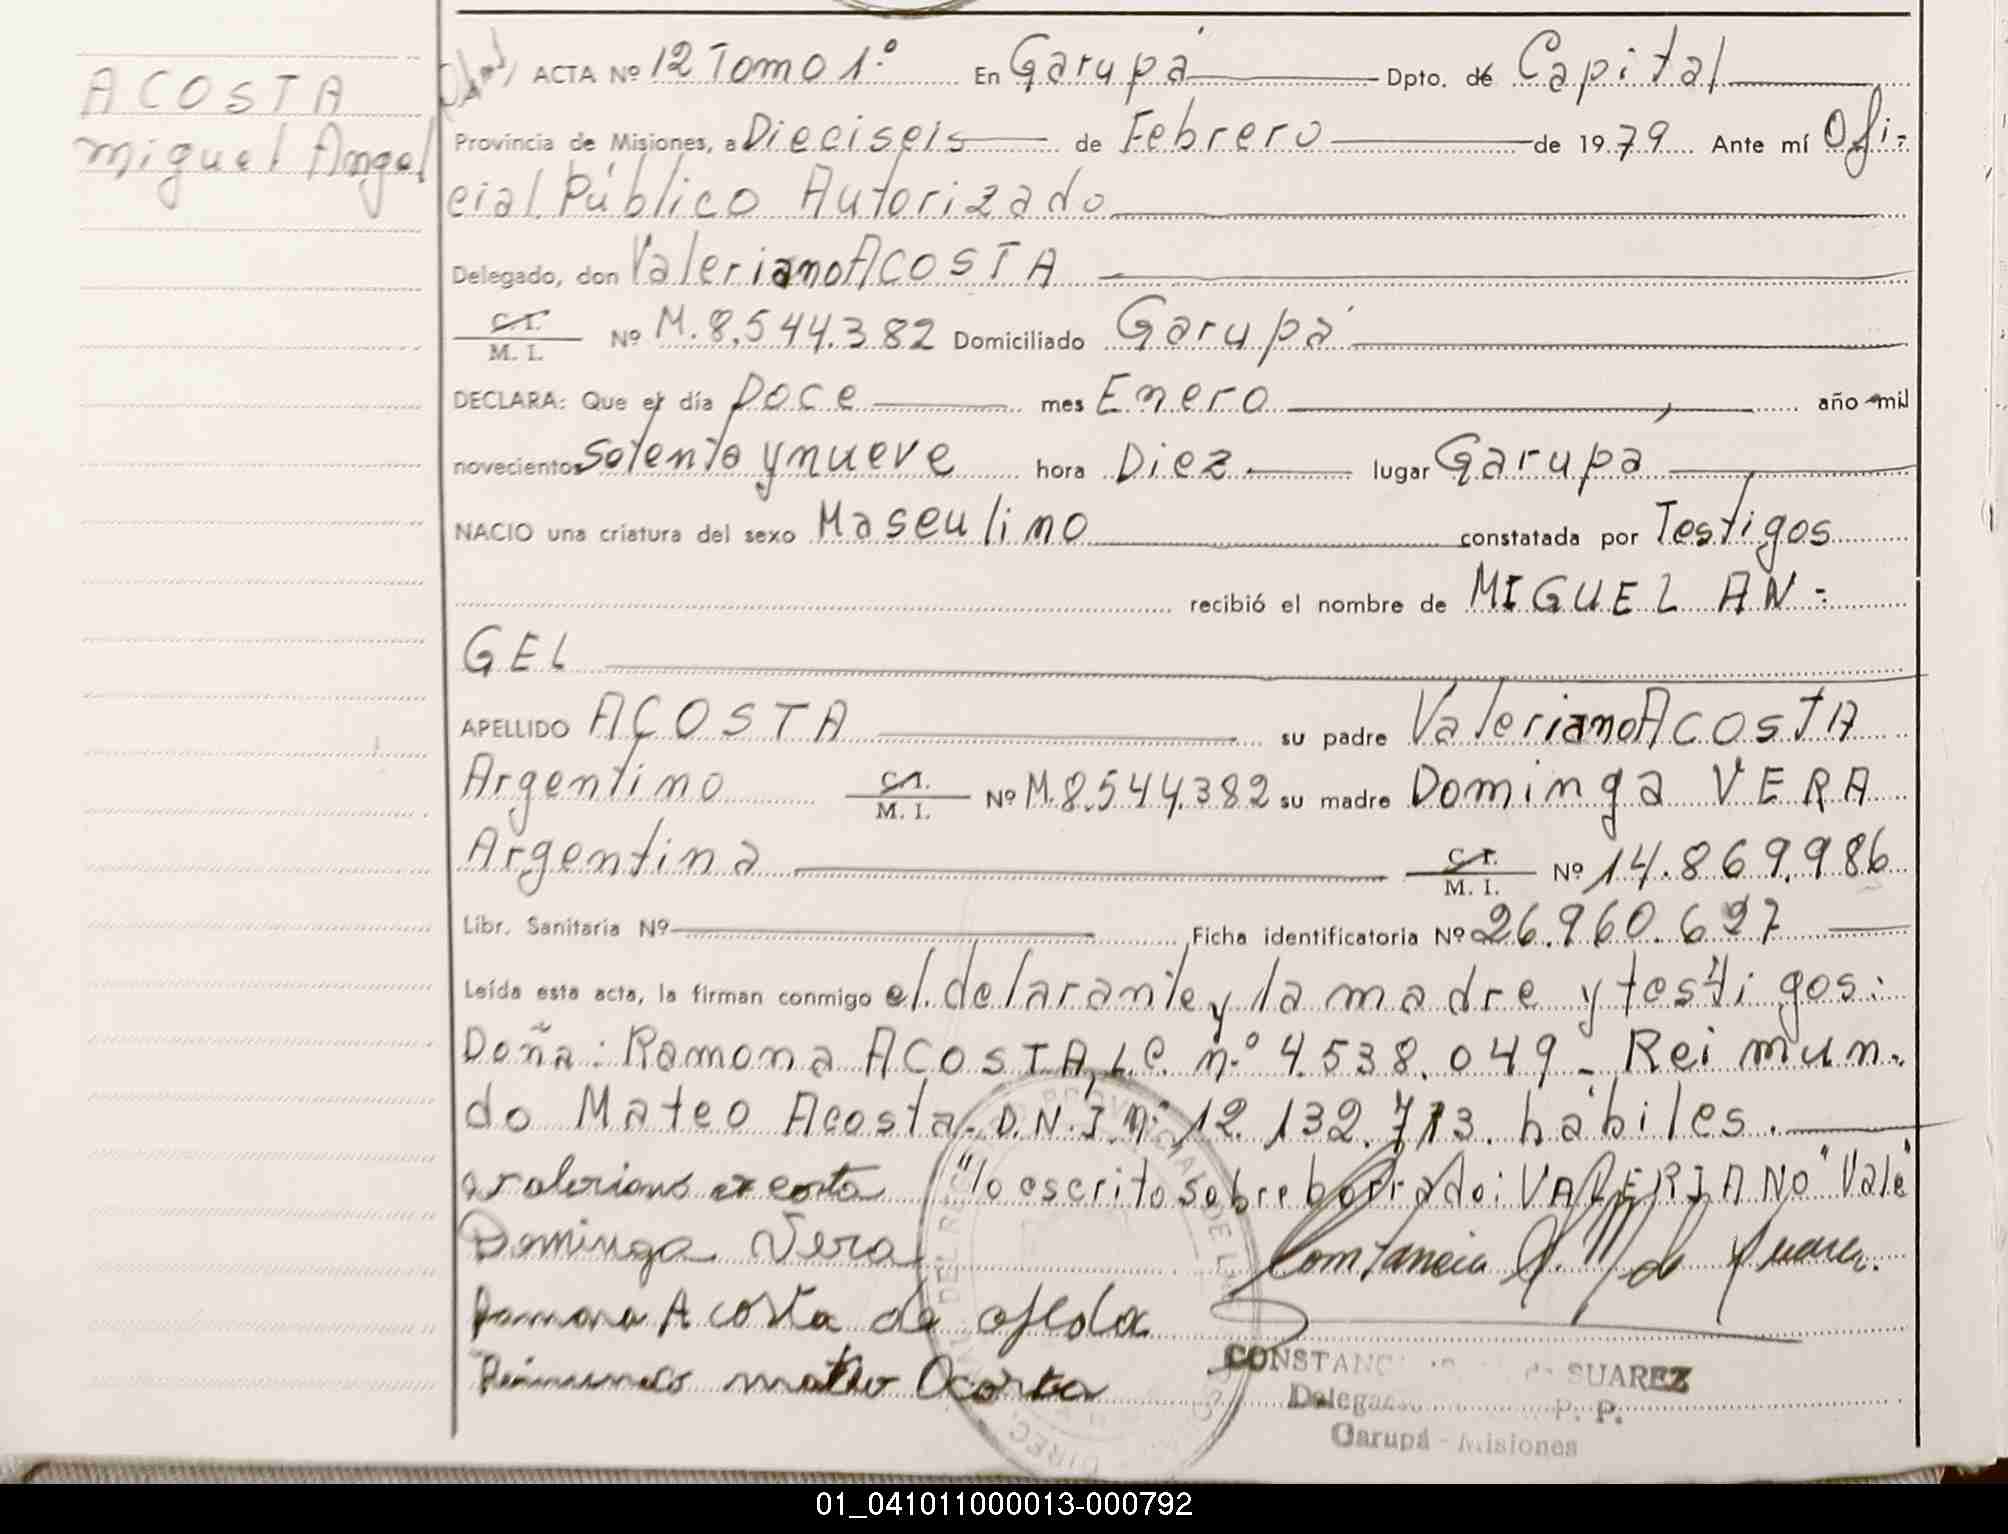 ACOSTA
Miguel Angel
ACTA Nº 12 Tomo 1.º En Garupá Dpto. de Capital
Provincia de Misiones, a Dieciseis de Febrero de 1979 Ante mí Ofi-
cial Público Autorizado
Delegado, don Valeriano ACOSTA
C. I.
M. I. Nº M. 8.544.382 Domiciliado Garupá
DECLARA: Que el día Doce mes Enero año mil
novecientos setenta y nueve hora Diez lugar Garupá
NACIO una criatura del sexo Masculino constatada por Testigos
recibió el nombre de MIGUEL AN-
GEL
APELLIDO ACOSTA su padre Valeriano ACOSTA
Argentino C. I. M. I. Nº M. 8.544.382 su madre Dominga VERA
Argentina C. I. M. I. Nº 14.869.986
Libr. Sanitaria Nº Ficha identificatoria Nº 26.960.627
Leída esta acta, la firman conmigo el delarante y la madre y testigos:
Doña: Ramona ACOSTA, L.C. n.º 4.538.049 - Reimun-
do Mateo Acosta. D.N.I. nº 12.132.713. hábiles.
valeriano acosta "lo escrito sobre borrado: VALERIANO" Vale
Dominga Vera
Ramona Acosta de ojeda
Reimundo mateo Acosta
CONSTANC SUAREZ
Delega P. P.
Garupá - Misiones
01_041011000013-000792